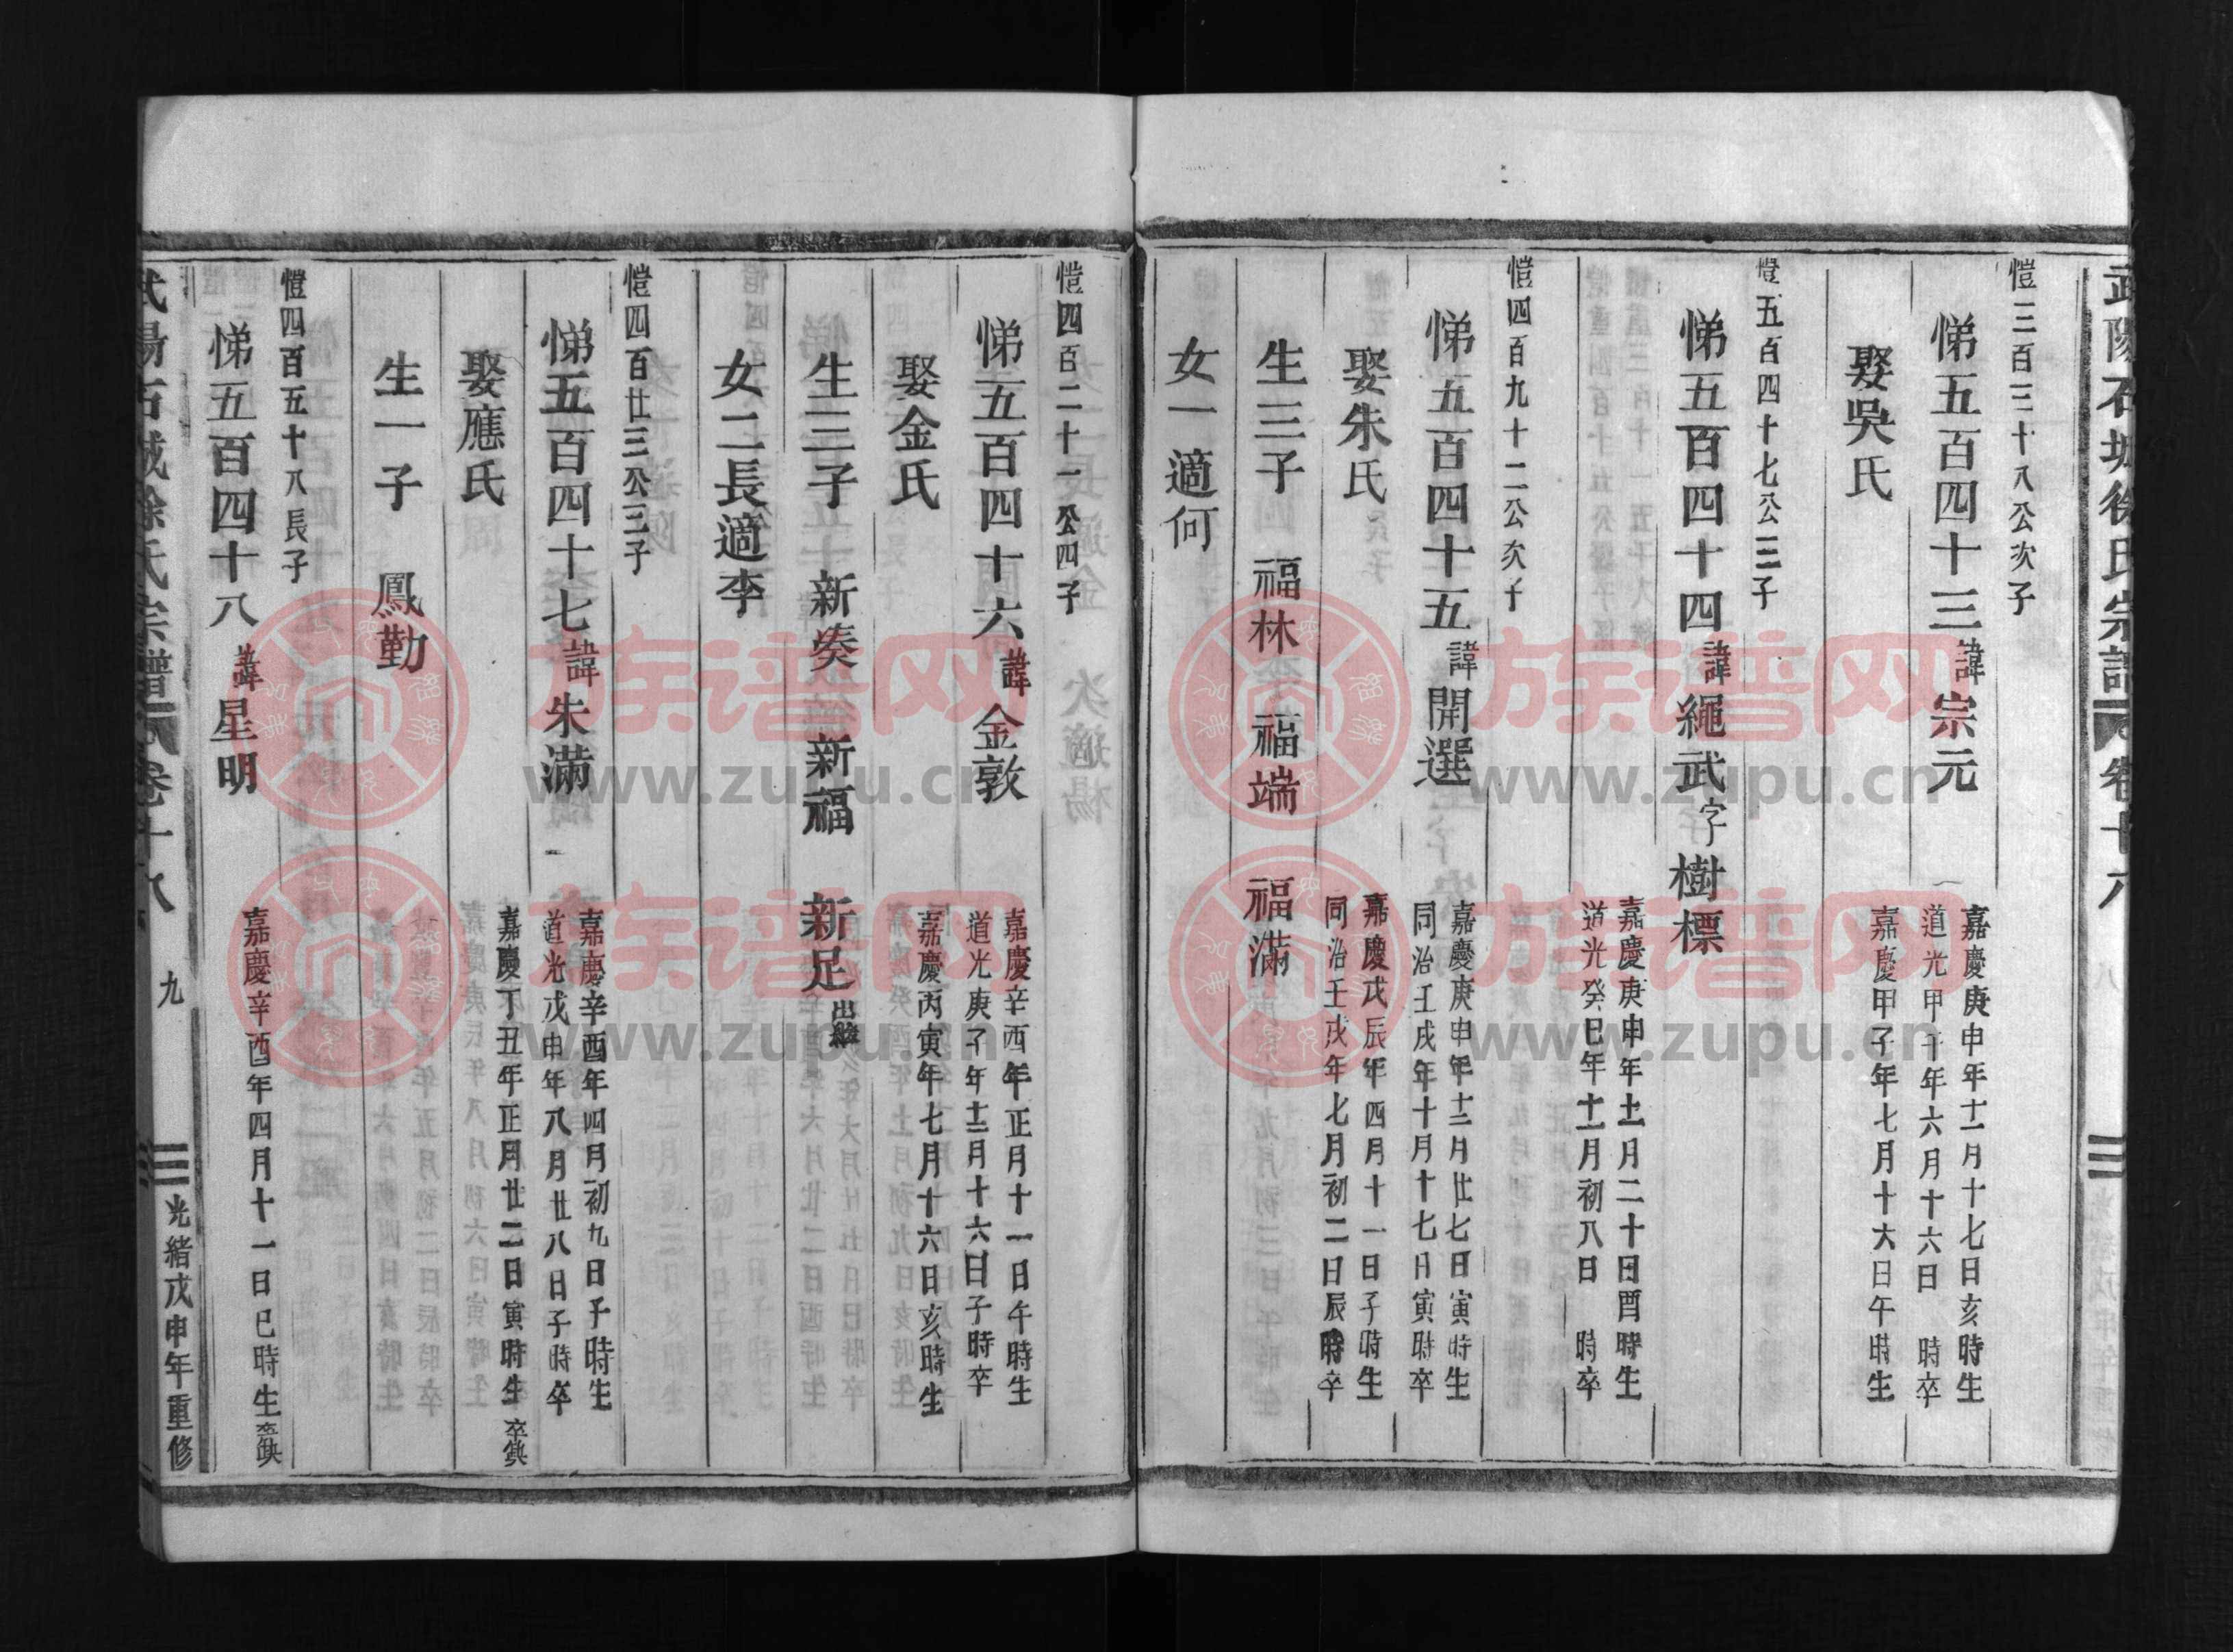 武陽石城徐氏宗譜 卷十八
愷三百三十八公次子
悌五百四十三 諱宗元 嘉慶庚申年十二月十七日亥時生
道光甲午年六月十六日 時卒
娶吳氏 嘉慶甲子年七月十六日午時生
愷五百四十七公三子
悌五百四十四 諱繩武 字樹標 嘉慶庚申年十一月二十日酉時生
道光癸巳年十二月初八日 時卒
愷四百九十二公次子
悌五百四十五 諱開選 嘉慶庚申年十二月廿七日寅時生
同治壬戌年十月十七日寅時卒
娶朱氏 嘉慶戊辰年四月十一日子時生
同治壬戌年七月初二日辰時卒
生三子 福林 福端 福滿
女一適何
愷四百二十一公四子
悌五百四十六 諱金敦 嘉慶辛酉年正月十一日午時生
道光庚子年十二月十六日子時卒
娶金氏 嘉慶丙寅年七月十六日亥時生
生三子 新奏 新福 新足 出繼
女二長適李
愷四百廿三公三子
悌五百四十七 諱朱滿 嘉慶辛酉年四月初九日子時生
道光戊申年八月廿八日子時卒
娶應氏 嘉慶丁丑年正月廿二日寅時生 卒缺
生一子 鳳勤
愷四百五十八長子
悌五百四十八 諱星明 嘉慶辛酉年四月十一日巳時生 卒缺
武陽石城徐氏宗譜 卷十八 九 光緒戊申年重修
族谱网
www.zupu.cn
族谱网
www.zupu.cn
族谱网
www.zupu.cn
族谱网
www.zupu.cn